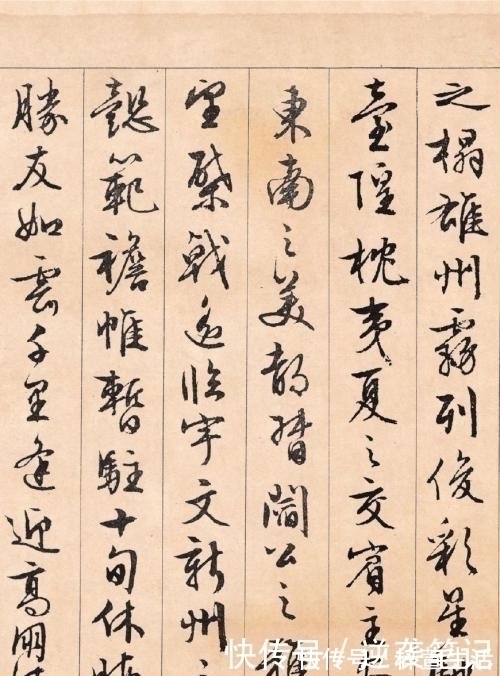 之榻雄州霧列俊彩星
臺隍枕夷夏之交賓主
東南之美都督閻公之雅
望棨戟遙臨宇文新州之
懿範襜帷暫駐十旬休
勝友如雲千里逢迎高朋
快传号 / 逆袭笔记
快传号
生活